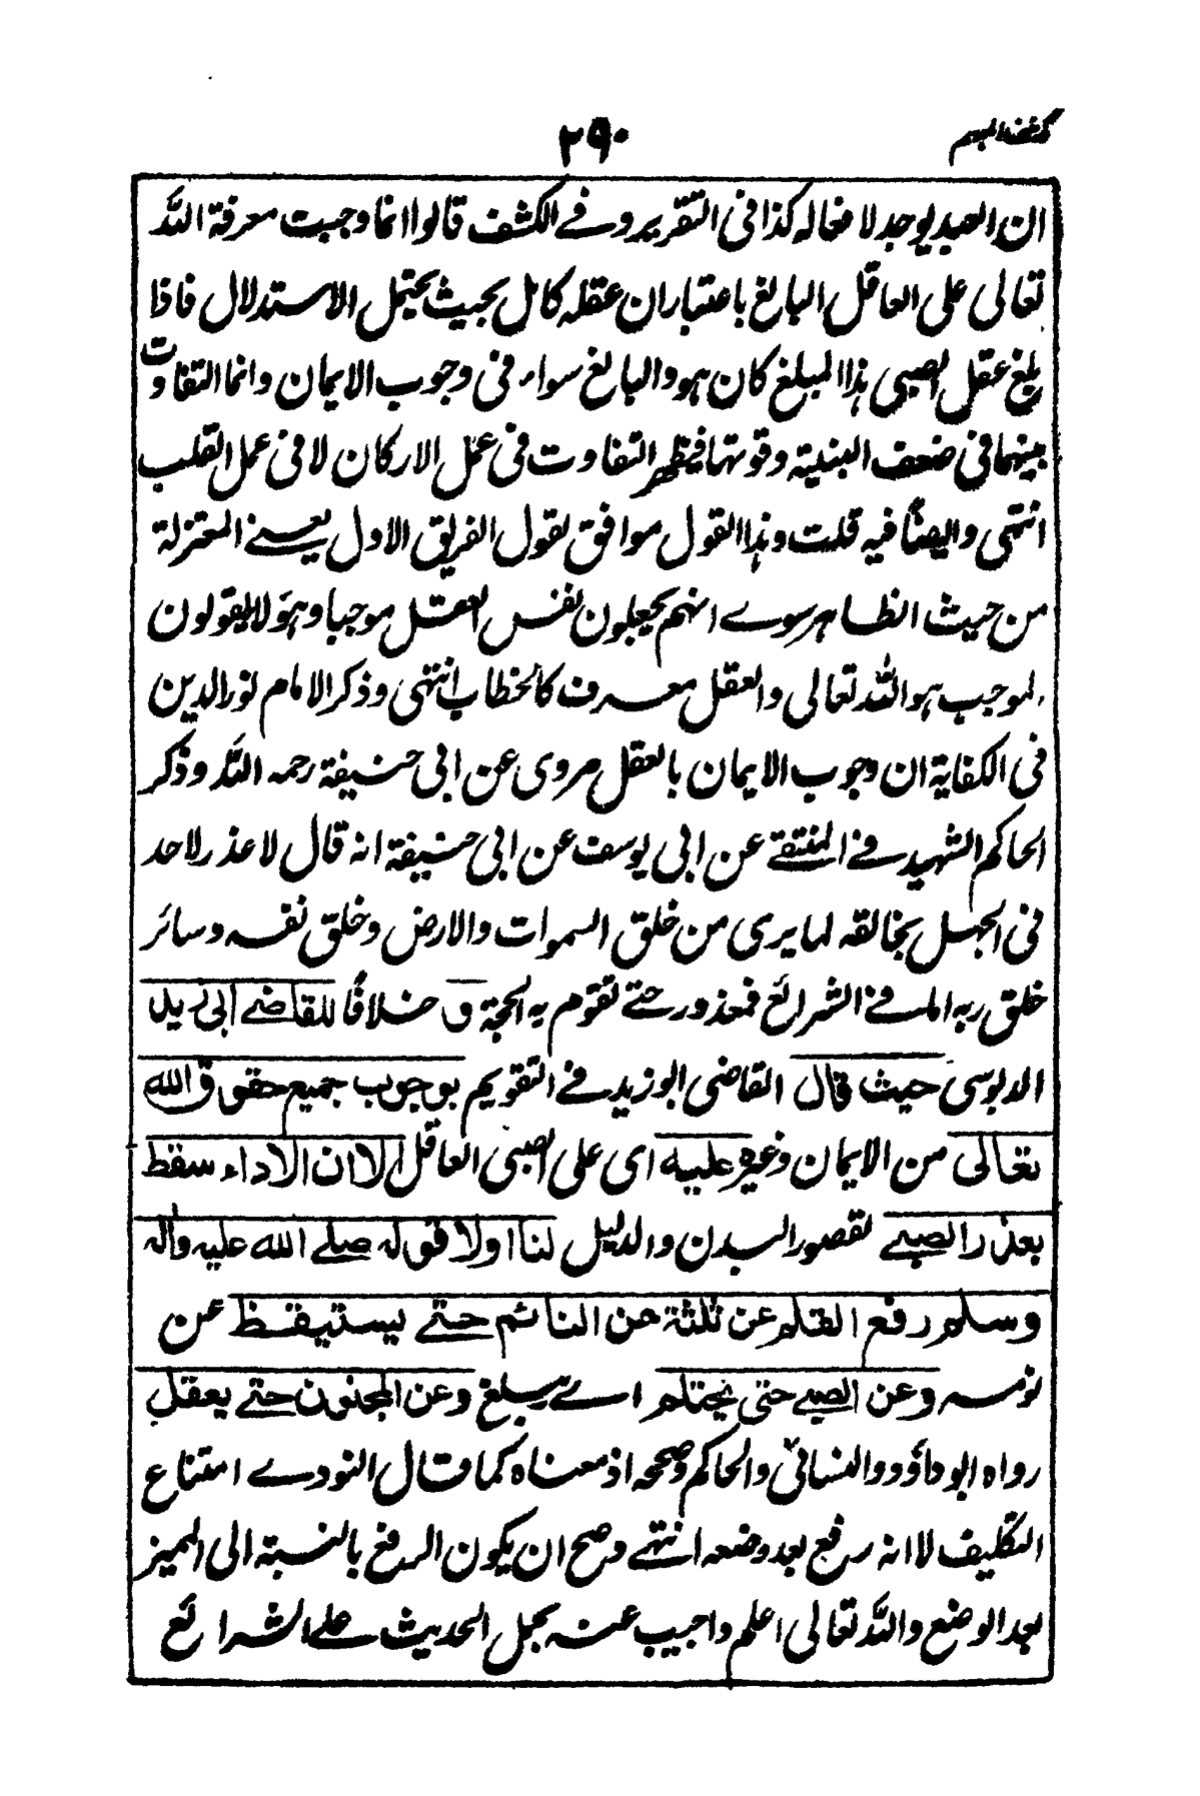 كشف المبهم
٢٩٠
ان العبد يوجد لا محاله كذا فى التقرير وفے الكشف قالوا انما وجبت معرفة الله
تعالى على العاقل البالغ باعتبار ان عقله كامل بحيث يحتمل الاستدلال فاذا
بلغ عقل الصبى هذا المبلغ كان هو والبالغ سواء فى وجوب الايمان وانما التفاوت
بينهما فى ضعف البنية وقوتها فيظهر التفاوت فى عمل الاركان لا فى عمل القلب
انتهى وايضاً فيه قلت وهذا القول موافق لقول الفريق الاول يعنے المعتزلة
من حيث الظاهر سوے انهم يجعلون نفس العقل موجبا وهؤلا يقولون
الموجب هو الله تعالى والعقل معرف كالخطاب انتهى وذكر الامام نور الدين
فى الكفاية ان وجوب الايمان بالعقل مروى عن ابى حنيفة رحمه الله وذكر
الحاكم الشهيد فے المنتقے عن ابى يوسف عن ابى حنيفة انه قال لا عذر لاحد
فى الجهل بخالقه لما يرى من خلق السموات والارض وخلق نفسه وسائر
خلق ربه اما فے الشرائع فمعذور حتے تقوم به الحجة ق خلافًا للقاضے ابى زيد
الدبوسى حيث قال القاضى ابو زيد فے التقويم بوجوب جميع حقوق الله
تعالى من الايمان وغيره عليه اى على الصبى العاقل الا ان الاداء سقط
بعذر الصبے لقصور البدن والدليل لنا اولا قوله صلے الله عليه واله
وسلم رفع القلم عن ثلثة عن النائم حتے يستيقظ عن
نومه وعن الصبے حتى يحتلم اے يبلغ وعن المجنون حتے يعقل
رواه ابو داؤد والنسائى والحاكم وصححه اذ معناه كما قال النووے امتناع
التكليف لا انه رفع بعد وضعه انتهے وصح ان يكون الرفع بالنسبة الى المميز
بعد الوضع والله تعالى اعلم واجيب عنه بحمل الحديث علے الشرائع